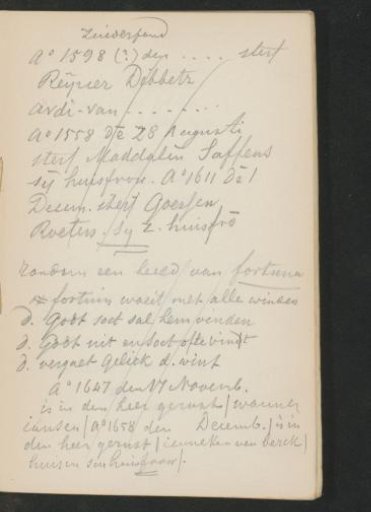 Zuiderpand
Aº 1598 (?) den .... sterf
Reijnier Dibbetz
Ardi-van .......
Aº 1558 de 28 Augusti
sterf Maddalin Saffens
sij huisfrou. Aº 1611 de 1
Decem. sterf Goessen
Roeters. sy 2. huisfrō
rondom een beeld van fortuna
fortuin waeit met alle winden
d. Godt soet sal hem vinden
d. Godt nit en soet ofte vindt
d. vergaet gelick d. wint
Aº 1647 den 17 Novemb.
is in den heer gerust / wanner
iansen / Aº 1658 den Decemb. / is in
den heer gerust / ienneken van berck /
huisvrouw /.